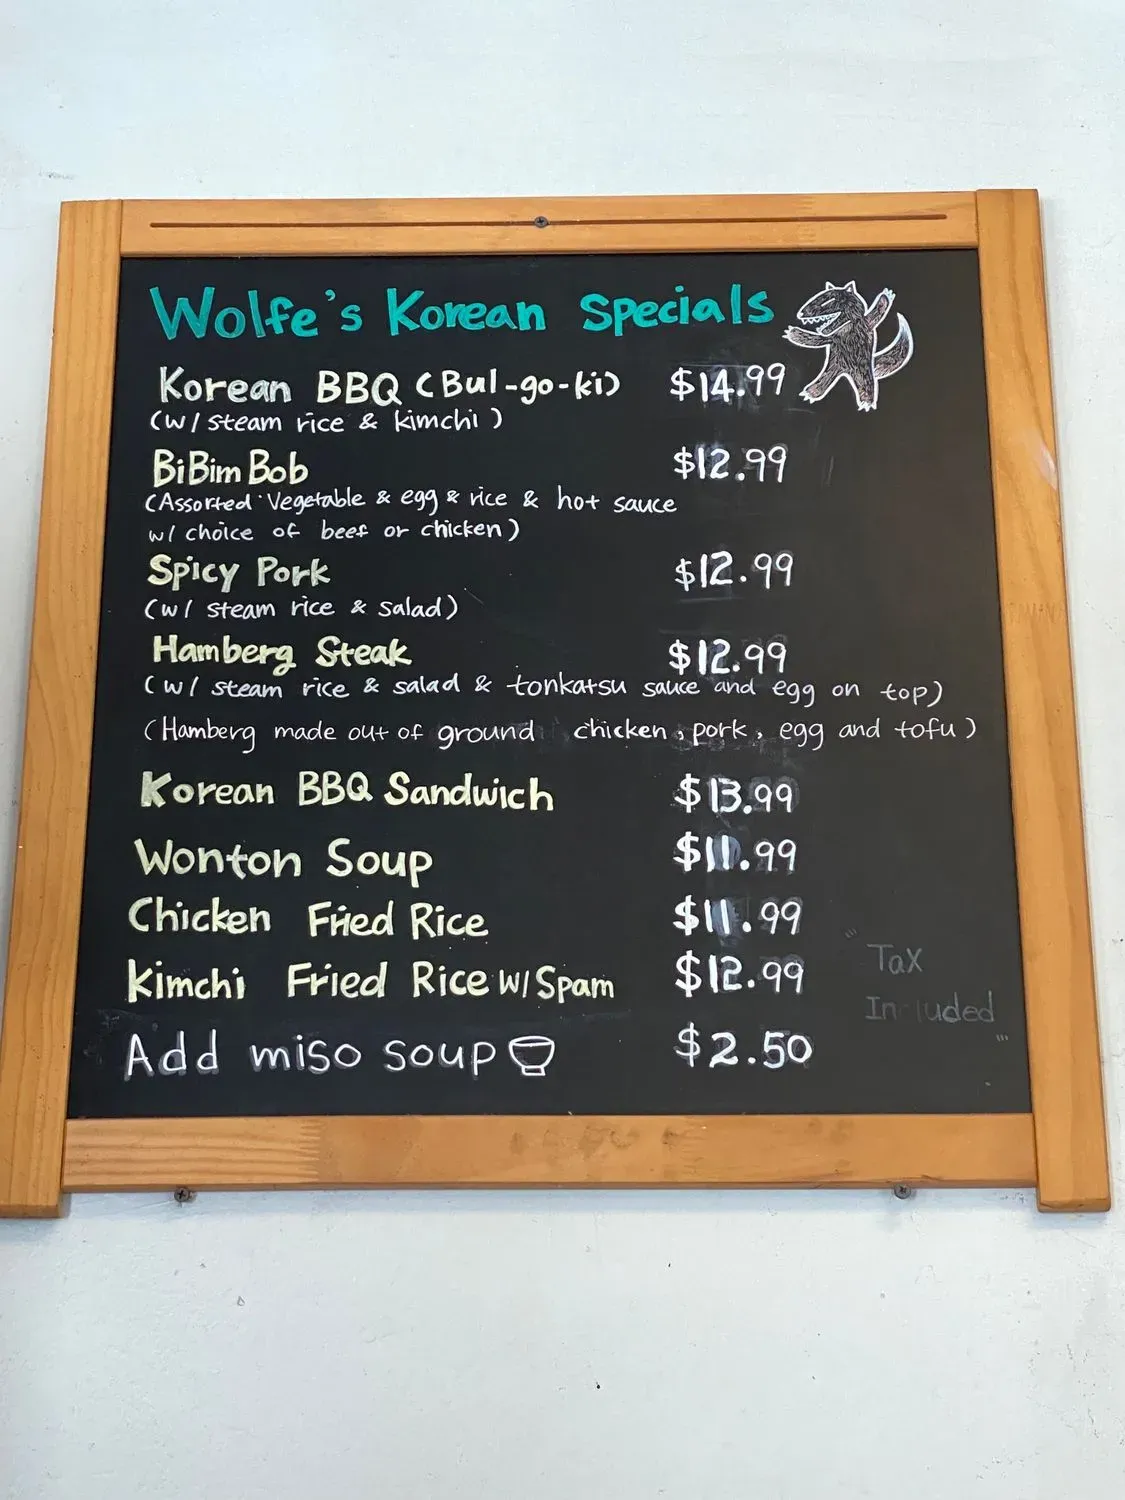 Wolfe's Korean Specials
Korean BBQ (Bul-go-ki) $14.99
(w/ steam rice & kimchi)
BiBim Bob $12.99
(Assorted Vegetable & egg & rice & hot sauce
w/ choice of beef or chicken)
Spicy Pork $12.99
(w/ steam rice & salad)
Hamberg Steak $12.99
(w/ steam rice & salad & tonkatsu sauce and egg on top)
(Hamberg made out of ground chicken, pork, egg and tofu)
Korean BBQ Sandwich $13.99
Wonton Soup $11.99
Chicken Fried Rice $11.99
Kimchi Fried Rice w/ Spam $12.99
Add miso soup $2.50
"Tax
Included"